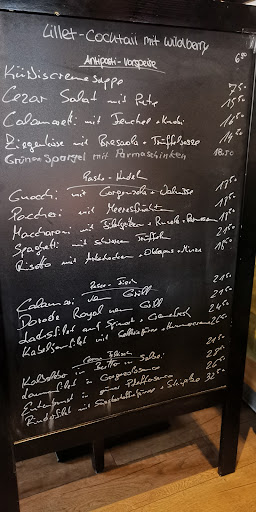 Lillet-Cocktail mit Wildberry 6.90
Antipasti-Vorspeise
Kürbiscremesuppe 7.50
Cezar Salat mit Pute 15.50
Calamaretti mit Fenchel + 16.50
Ziegenkäse mit Bresaola + Trüffelsauce 14.50
Grüner Spargel mit Parmaschinken 18.50
Pasta-Nudeln
Gnocchi mit Gorgonzola + Walnüsse
Paccheri mit Meeresfrüchte
Maccheroni mit + Rucola + Parmesan
Spaghetti mit schwarzem Trüffel 21.50
Risotto mit Artischocken + Oktopus + Minze
Pesce-Fisch
Calamari vom Grill 21.50
Dorade Royal vom Grill
Lachsfilet auf Spinat + 24.50
Kabeljaufilet mit
Carne-Fleisch
in Butter + Salbei
Lammfilet in Gorgonzolasauce
Entenbrust in Pfeffersauce
Rinderfilet mit 32.50